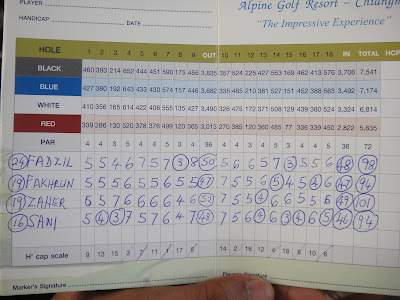 PLAYER
HANDICAP DATE
Alpine Golf Resort – Chiangm
"The Impressive Experience"
HOLE 1 2 3 4 5 6 7 8 9 OUT 10 11 12 13 14 15 16 17 18 IN TOTAL HCP
BLACK 460 393 214 652 444 451 590 175 456 3,835 357 524 225 427 553 169 462 413 576 3,706 7,541
BLUE 427 380 192 643 433 430 574 157 446 3,682 335 485 210 381 527 151 452 388 563 3,492 7,174
WHITE 410 356 165 614 422 406 555 135 427 3,490 326 475 172 371 508 129 439 380 524 3,324 6,814
RED 339 286 130 520 378 376 499 120 365 3,013 270 385 120 360 485 77 336 339 450 2,822 5,835
PAR 4 4 3 5 4 4 5 3 4 36 4 5 3 4 5 3 4 4 4 36 72
24 FADZIL 5 5 4 6 7 5 7 3 8 50 5 6 6 5 7 3 5 5 6 48 98
19 FAKHRUN 5 5 5 6 5 5 6 5 5 47 7 5 5 6 5 4 5 4 6 47 94
19 ZAHER 6 5 7 6 6 6 6 4 6 52 7 5 5 4 6 6 5 5 6 49 101
16 SANI 5 4 3 7 5 7 6 4 7 48 7 5 6 4 6 3 4 6 5 46 94
H' cap scale 9 13 15 3 7 11 1 17 5 14 2 16 12 4 18 8 10 6
Marker's Signature